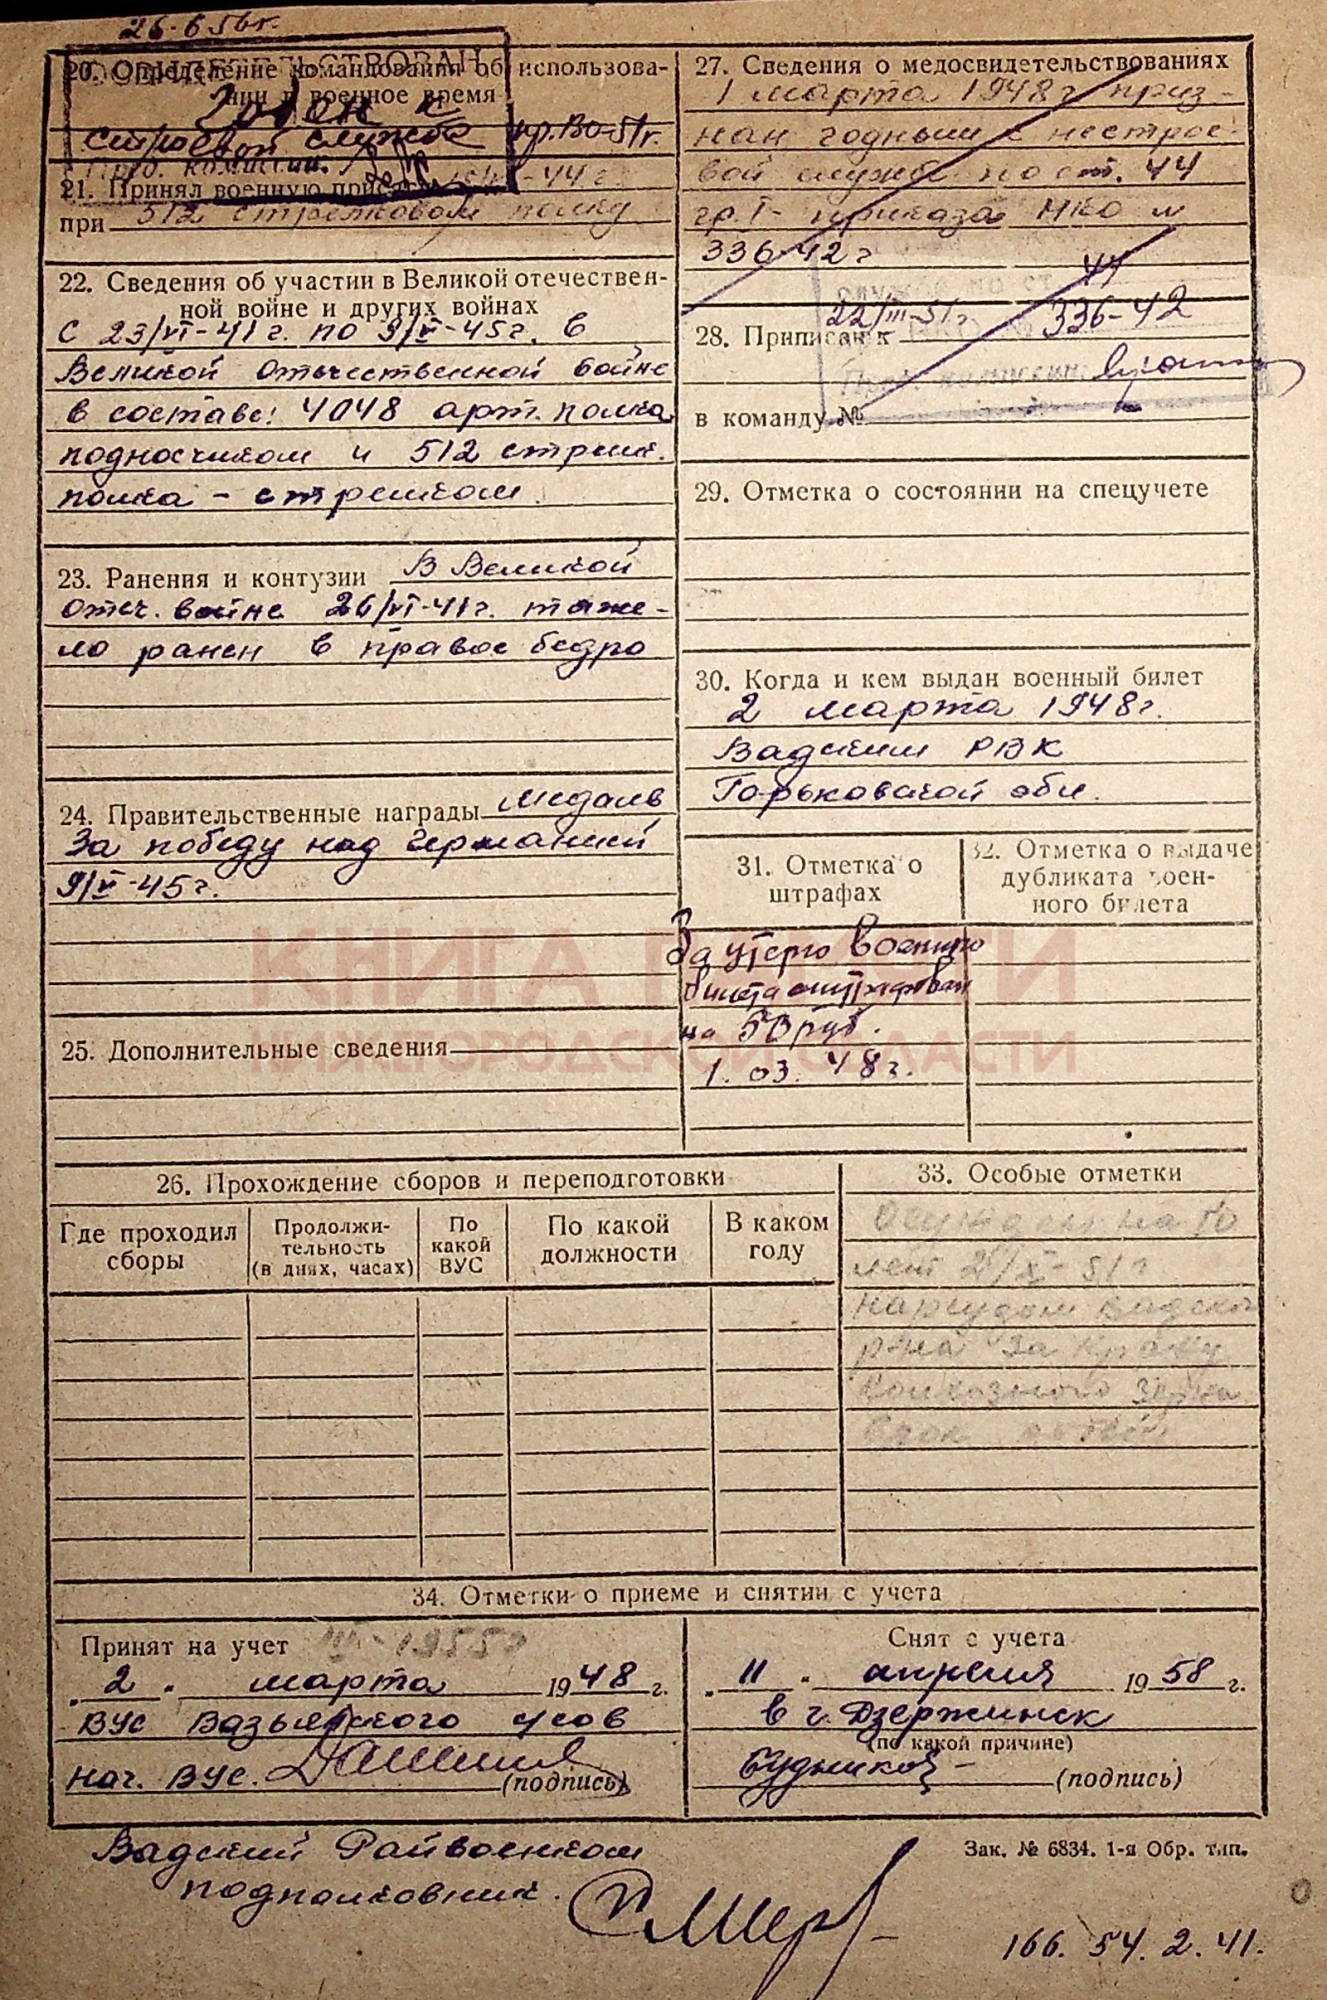 26-6 56г.
ОСВИДЕТЕЛЬСТВОВАН
20. Определение командования об использова-
нии в военное время
Годен к
строевой службе пр. ВО-51г.
Пред. комиссии.
21. Принял военную присягу -44г
при 512 стрелковом полку
22. Сведения об участии в Великой отечествен-
ной войне и других войнах
с 23/VI-41г. по 9/V-45г. в
Великой Отечественной войне
в составе: 4048 арт. полка
подносчиком и 512 стрелк.
полка - стрелком.
23. Ранения и контузии В Великой
Отеч. войне 26/VI-41г. тяже-
ло ранен в правое бедро
24. Правительственные награды Медаль
За победу над Германией
9/V-45г.
25. Дополнительные сведения
27. Сведения о медосвидетельствованиях
1 марта 1948г приз-
нан годным к нестрое-
вой службе по ст. 44
гр. I приказа НКО №
336-42г
44
22/III-51г. 336-42
28. Приписан к
Пред. комиссии:
в команду №
29. Отметка о состоянии на спецучете
30. Когда и кем выдан военный билет
2 марта 1948г.
Вадским РВК
Горьковской обл.
31. Отметка о
штрафах
За утерю военного
билета оштрафован
на 50 руб.
1. 03. 48г.
32. Отметка о выдаче
дубликата воен-
ного билета
КНИГА ПАМЯТИ
НИЖЕГОРОДСКОЙ ОБЛАСТИ
26. Прохождение сборов и переподготовки
Где проходил
сборы
Продолжи-
тельность
(в днях, часах)
По
какой
ВУС
По какой
должности
В каком
году
33. Особые отметки
Осужден на 10
лет 2/X-51г
Нарсудом Вадского
р-на за кражу
колхозного зерна
Срок
34. Отметки о приеме и снятии с учета
Принят на учет -1955г
„2" марта 1948г.
ВУС Вазьянского
нач. ВУС. (подпись)
Снят с учета
„11" апреля 1958г.
в г. Дзержинск
(по какой причине)
(подпись)
Вадский Райвоенком
подполковник.
Зак. № 6834. 1-я Обр. тип.
166. 54. 2. 41.